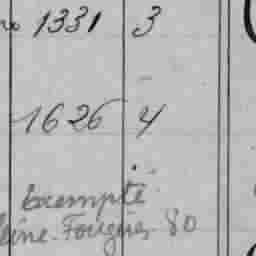 1331 3
1626 4
Exempté
leine-Fougères 80